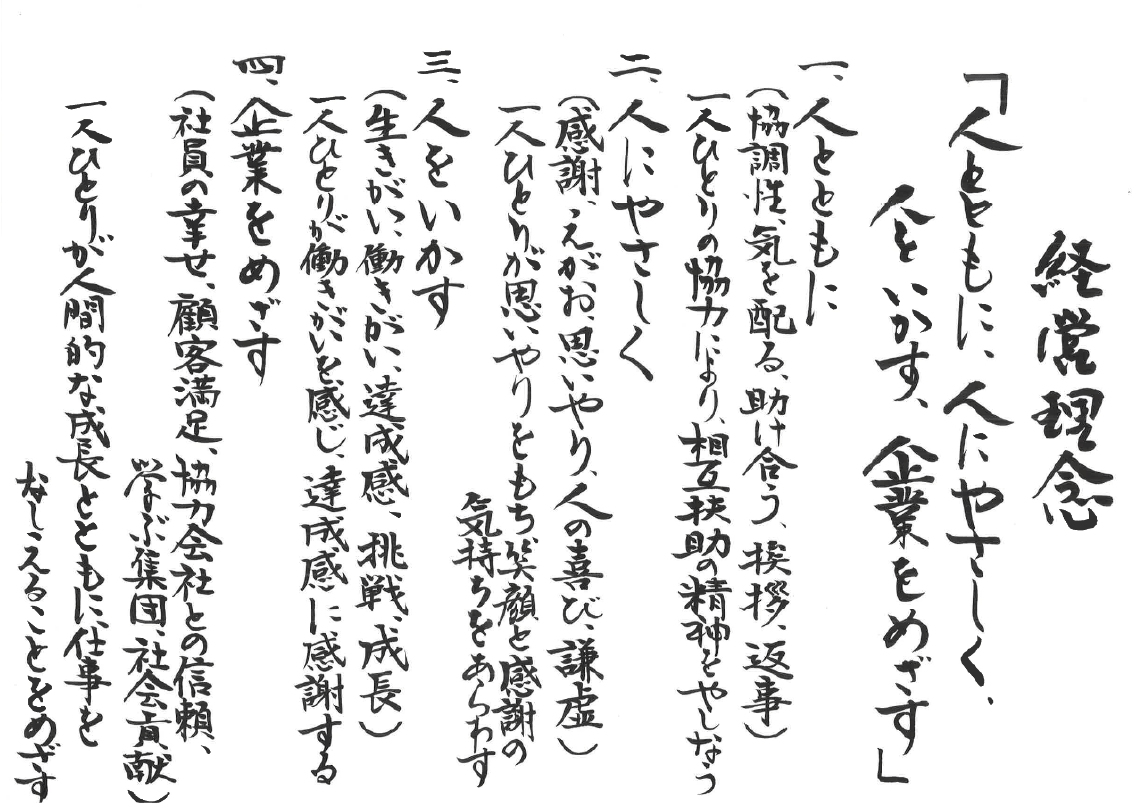 経営理念
「人とともに、人にやさしく、
人をいかす、企業をめざす」
一、人とともに
(協調性、気を配る、助け合う、挨拶、返事)
一人ひとりの協力により、相互扶助の精神をやしなう
二、人にやさしく
(感謝、えがお、思いやり、人の喜び、謙虚)
一人ひとりが思いやりをもち笑顔と感謝の
気持ちをあらわす
三、人をいかす
(生きがい、働きがい、達成感、挑戦、成長)
一人ひとりが働きがいを感じ、達成感に感謝する
四、企業をめざす
(社員の幸せ、顧客満足、協力会社との信頼、
学ぶ集団、社会貢献)
一人ひとりが人間的な成長とともに、仕事を
なしえることをめざす